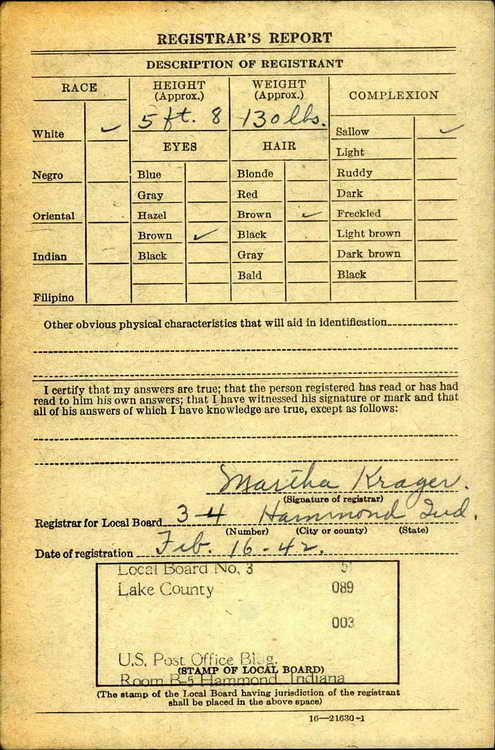 REGISTRAR'S REPORT
DESCRIPTION OF REGISTRANT
RACE
HEIGHT
(Approx.)
WEIGHT
(Approx.)
COMPLEXION
5 ft. 8
130 lbs.
White ✓
Sallow ✓
EYES
HAIR
Light
Negro
Blue
Blonde
Ruddy
Gray
Red
Dark
Oriental
Hazel
Brown ✓
Freckled
Brown ✓
Black
Light brown
Indian
Black
Gray
Dark brown
Bald
Black
Filipino
Other obvious physical characteristics that will aid in identification
I certify that my answers are true; that the person registered has read or has had
read to him his own answers; that I have witnessed his signature or mark and that
all of his answers of which I have knowledge are true, except as follows:
Martha Krager.
(Signature of registrar)
Registrar for Local Board 3-4 Hammond Ind.
(Number) (City or county) (State)
Date of registration Feb. 16-42.
Local Board No. 3
Lake County 089
003
U.S. Post Office Bldg.
(STAMP OF LOCAL BOARD)
Room B-5 Hammond, Indiana
(The stamp of the Local Board having jurisdiction of the registrant
shall be placed in the above space)
16—21630-1